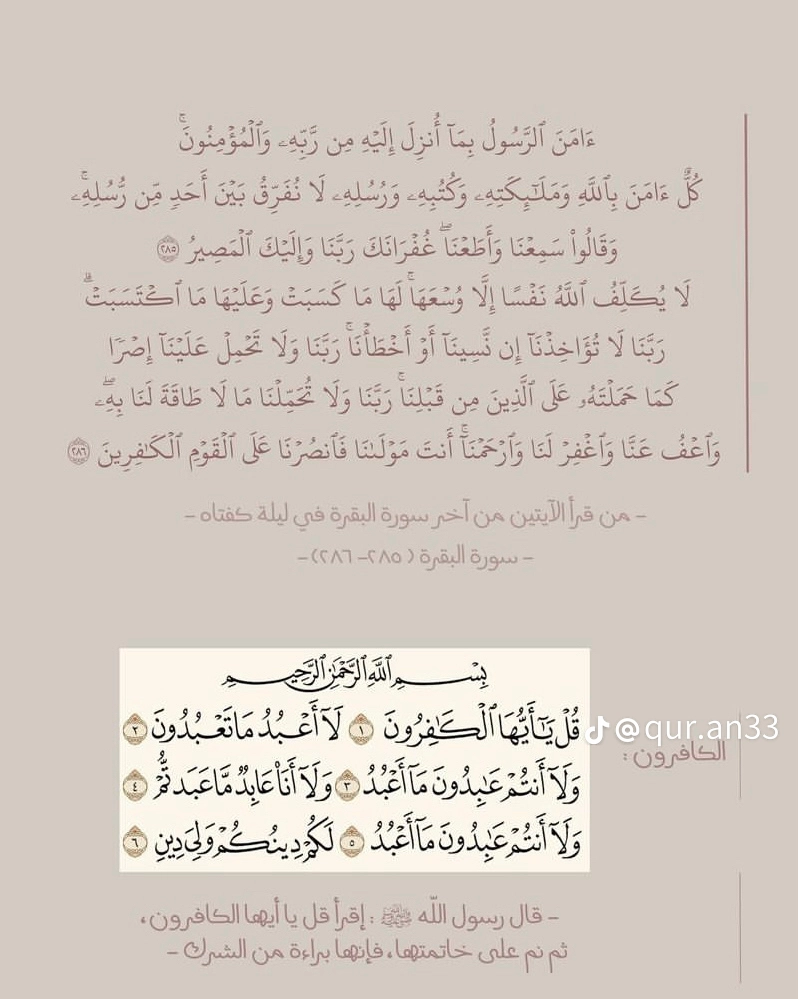 ءَامَنَ ٱلرَّسُولُ بِمَآ أُنزِلَ إِلَيْهِ مِن رَّبِّهِۦ وَٱلْمُؤْمِنُونَۚ
كُلٌّ ءَامَنَ بِٱللَّهِ وَمَلَـٰٓئِكَتِهِۦ وَكُتُبِهِۦ وَرُسُلِهِۦ لَا نُفَرِّقُ بَيْنَ أَحَدٍ مِّن رُّسُلِهِۦۚ
وَقَالُوا۟ سَمِعْنَا وَأَطَعْنَاۖ غُفْرَانَكَ رَبَّنَا وَإِلَيْكَ ٱلْمَصِيرُ ٢٨٥
لَا يُكَلِّفُ ٱللَّهُ نَفْسًا إِلَّا وُسْعَهَاۚ لَهَا مَا كَسَبَتْ وَعَلَيْهَا مَا ٱكْتَسَبَتْۗ
رَبَّنَا لَا تُؤَاخِذْنَآ إِن نَّسِينَآ أَوْ أَخْطَأْنَاۚ رَبَّنَا وَلَا تَحْمِلْ عَلَيْنَآ إِصْرًا
كَمَا حَمَلْتَهُۥ عَلَى ٱلَّذِينَ مِن قَبْلِنَاۚ رَبَّنَا وَلَا تُحَمِّلْنَا مَا لَا طَاقَةَ لَنَا بِهِۦۖ
وَٱعْفُ عَنَّا وَٱغْفِرْ لَنَا وَٱرْحَمْنَآۚ أَنتَ مَوْلَىٰنَا فَٱنصُرْنَا عَلَى ٱلْقَوْمِ ٱلْكَـٰفِرِينَ ٢٨٦
- من قرأ الآيتين من آخر سورة البقرة في ليلة كفتاه -
- سورة البقرة ( ٢٨٥- ٢٨٦)-
بِسْمِ ٱللَّهِ ٱلرَّحْمَـٰنِ ٱلرَّحِيمِ
قُلْ يَـٰٓأَيُّهَا ٱلْكَـٰفِرُونَ ١ لَآ أَعْبُدُ مَا تَعْبُدُونَ ٢
@qur.an33
الكافرون :
وَلَآ أَنتُمْ عَـٰبِدُونَ مَآ أَعْبُدُ ٣ وَلَآ أَنَا۠ عَابِدٌ مَّا عَبَدتُّمْ ٤
وَلَآ أَنتُمْ عَـٰبِدُونَ مَآ أَعْبُدُ ٥ لَكُمْ دِينُكُمْ وَلِىَ دِينِ ٦
- قال رسول الله ﷺ : إقرأ قل يا أيها الكافرون،
ثم نم على خاتمتها، فإنها براءة من الشرك -